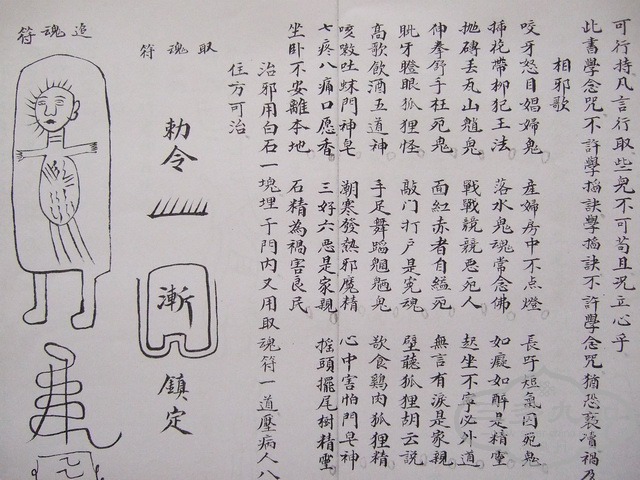 可行持凡言行取些鬼不可苟且況立心乎
此書學念咒不許學搯訣學搯訣不許學念咒猶恐褻瀆禍乃
相邪歌
咬牙怒目娼婦鬼 產婦房中不点燈 長吁短氣囚死鬼
帶柳犯王法 落水鬼魂常念佛 如癡如醉是精靈
拋磚丟瓦山魈鬼 戰戰競競惡死人 起坐不寧必外道
伸拳舒手枉死鬼 面紅赤者自縊死 無言有淚是家親
眺牙瞪眼狐狸怪 敲门打户是冤魂 壁聽狐狸胡云說
高歌飲酒五道神 手足舞蹈魍魎鬼 欲食鷄肉狐狸精
咳嗽吐蛛門神皂 潮寒發熱邪魔精 心中害怕門皂神
七疼八痛口愿香 三好六惡是家親 搖頭擺尾樹精靈
坐卧不安離本地 石精為禍害良民
治邪用白石一塊埋于門內又用取魂符一道壓病人八
住方可治
取魂符
勅令
漸
鎮定
追魂符